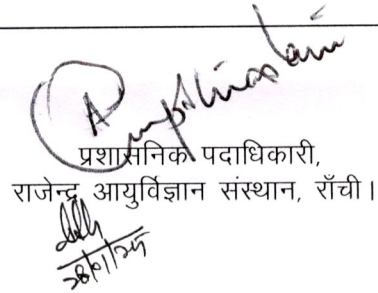 प्रशासनिक पदाधिकारी,
राजेन्द्र आयुर्विज्ञान संस्थान, राँची।
28/01/25